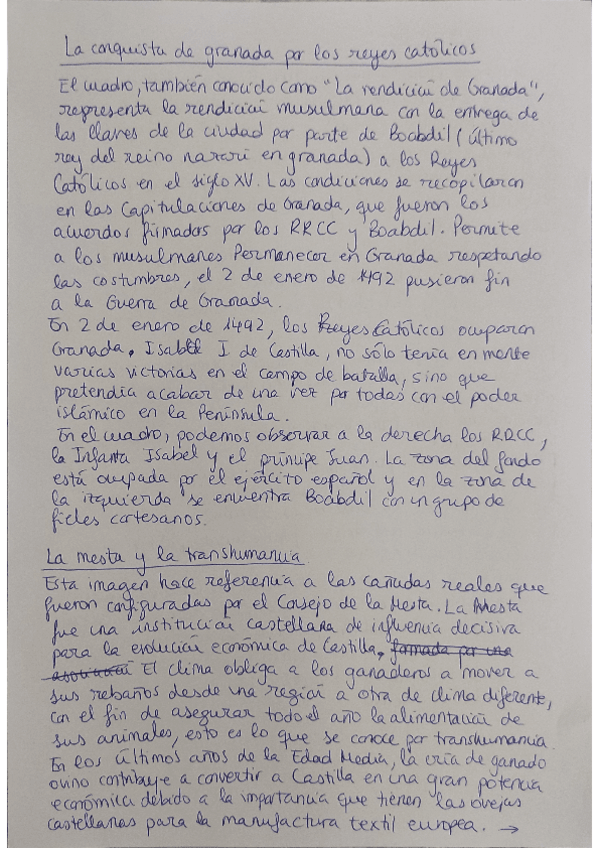 La conquista de granada por los reyes católicos
El cuadro, también conocido como "La rendición de Granada",
representa la rendición musulmana con la entrega de
las llaves de la ciudad por parte de Boabdil (último
rey del reino nazarí en granada) a los Reyes
Católicos en el siglo XV. Las condiciones se recopilaron
en las Capitulaciones de Granada, que fueron los
acuerdos firmados por los RRCC y Boabdil. Permite
a los musulmanes Permanecer en Granada respetando
las costumbres, el 2 de enero de 1492 pusieron fin
a la Guerra de Granada.
En 2 de enero de 1492, los Reyes Católicos ocuparon
Granada. Isabel I de Castilla, no sólo tenía en mente
varias victorias en el campo de batalla, sino que
pretendía acabar de una vez por todas con el poder
islámico en la Península.
En el cuadro, podemos observar a la derecha los RRCC,
la Infanta Isabel y el príncipe Juan. La zona del fondo
está ocupada por el ejército español y en la zona de
la izquierda se encuentra Boabdil con un grupo de
fieles cortesanos.
La mesta y la transhumancia
Esta imagen hace referencia a las cañadas reales que
fueron configuradas por el Consejo de la Mesta. La Mesta
fue una institución castellana de influencia decisiva
para la evolución económica de Castilla, formada por una
asociación El clima obliga a los ganaderos a mover a
sus rebaños desde una región a otra de clima diferente,
con el fin de asegurar todo el año la alimentación de
sus animales, esto es lo que se conoce por transhumancia.
En los últimos años de la Edad Media, la cría de ganado
ovino contribuye a convertir a Castilla en una gran potencia
económica debido a la importancia que tienen las ovejas
castellanas para la manufactura textil europea. →